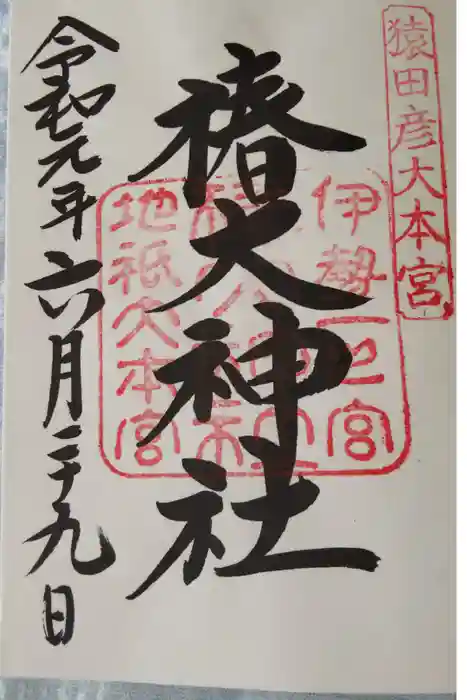 猿田彦大本宮
伊勢一之宮
椿大神社
地祇大本宮
椿大神社
令和元年六月二十九日